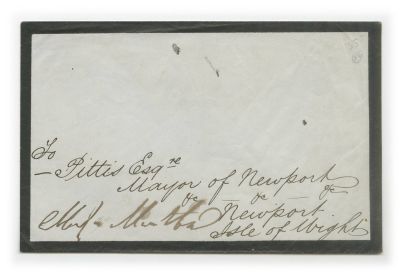 To
— Pittis Esqre
Mayor of Newport
&c &c &c
Newport
Isle of Wight